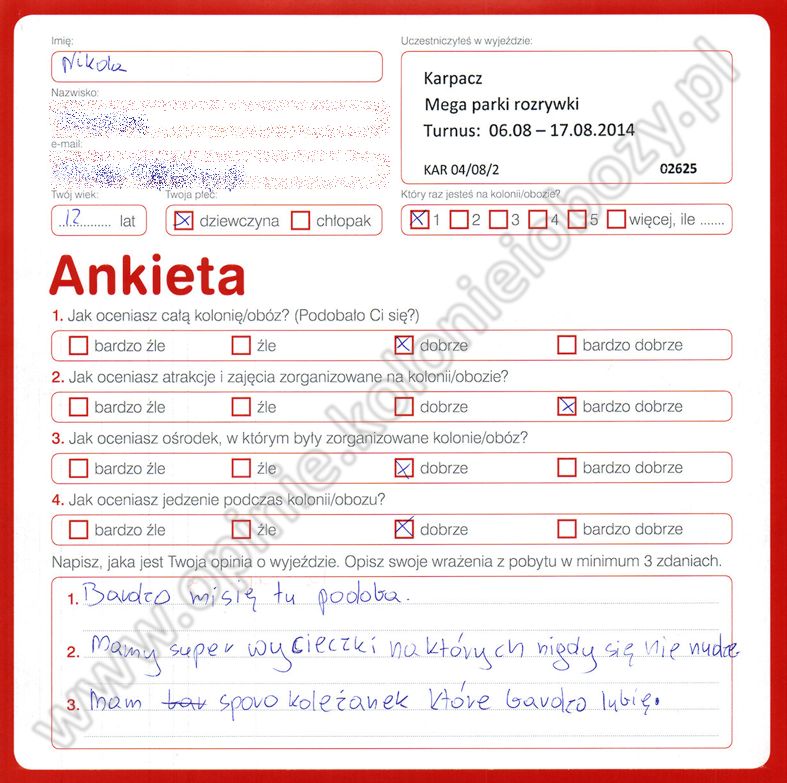 Imię:
Nikola
Nazwisko:
e-mail:
Twój wiek:
12 lat
Twoja płeć:
dziewczyna chłopak
Uczestniczyłeś w wyjeździe:
Karpacz
Mega parki rozrywki
Turnus: 06.08 – 17.08.2014
KAR 04/08/2 02625
Który raz jesteś na kolonii/obozie?
1 2 3 4 5 więcej, ile .......
Ankieta
1. Jak oceniasz całą kolonię/obóz? (Podobało Ci się?)
bardzo źle źle dobrze bardzo dobrze
2. Jak oceniasz atrakcje i zajęcia zorganizowane na kolonii/obozie?
bardzo źle źle dobrze bardzo dobrze
3. Jak oceniasz ośrodek, w którym były zorganizowane kolonie/obóz?
bardzo źle źle dobrze bardzo dobrze
4. Jak oceniasz jedzenie podczas kolonii/obozu?
bardzo źle źle dobrze bardzo dobrze
Napisz, jaka jest Twoja opinia o wyjeździe. Opisz swoje wrażenia z pobytu w minimum 3 zdaniach.
1. Bardzo mi się tu podoba.
2. Mamy super wycieczki na których nigdy się nie nudzę
3. Mam bar sporo koleżanek które bardzo lubię.
www.opinie.kolonieiobozy.pl